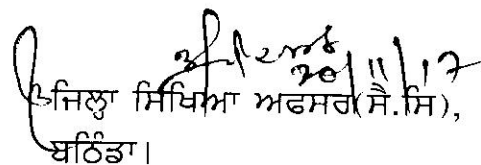 20/11/17
ਜਿਲ੍ਹਾ ਸਿੱਖਿਆ ਅਫਸਰ(ਸੈ.ਸਿ),
ਬਠਿੰਡਾ।